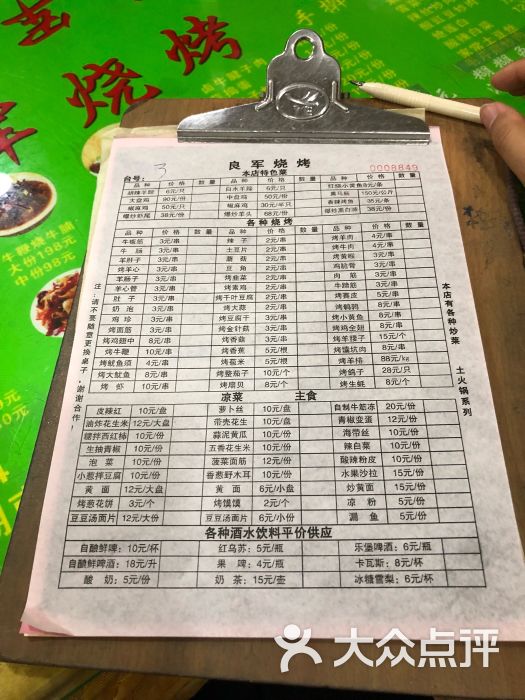 烧烤
良军烧烤
本店特色菜
0008849
台号: 3
品种 价格 数量 品种 价格 数量 品种 价格 数量
胡辣羊蹄 6元/只 白水羊蹄 6元/只 红烧小黄鱼 8元/条
大盘鸡 90元/份 中盘鸡 50元/份 黑马鲷 150元/公斤
椒麻鸡 50元/只 椒麻鸡 30元/半只 香辣烤鱼 35元/条
爆炒虾尾 38元/份 爆炒羊头 68元/份 爆炒黑白肺 38元/份
各种烧烤
品种 价格 数量 品种 价格 数量 品种 价格 数量
牛板筋 3元/串 辣子 2元/串 烤羊肉 4元/串
牛肠 3元/串 土豆片 2元/串 烤牛肉 4元/串
羊肝子 3元/串 蘑菇 2元/串 烤黄喉 3元/串
烤羊心 3元/串 豆角 2元/串 鸡脆骨 3元/串
羊肠子 3元/串 烤韭菜 2元/串 肉筋 3元/串
羊心管 3元/串 烤素鸡 2元/串 牛蹄筋 3元/串
肚子 3元/串 烤干叶豆腐 2元/串 烤赛皮 5元/串
奶泡 3元/串 烤大蒜 2元/串 烤鹌鹑 8元/串
鸡珍 3元/串 烤豆腐干 2元/串 烤小黄鱼 8元/串
烤面筋 3元/串 烤金针菇 3元/串 烤鸡全翅 8元/串
烤鸡翅中 8元/串 烤香菇 3元/串 烤羊腰子 15元/个
烤牛鞭 10元/串 烤香蕉 5元/根 烤馕坑肉 8元/串
烤鱿鱼须 4元/串 烤苞米 5元/根 烤羊排 88元/kg
烤大鱿鱼 8元/串 烤整茄子 10元/个 烤鸽子 28元/只
烤虾 10元/串 烤扇贝 8元/个 烤生蚝 8元/个
注:请不要随意更换桌子,谢谢合作!
本店有各种炒菜
土火锅系列
凉菜 主食
皮辣红 10元/盘 萝卜丝 10元/盘 自制牛筋冻 20元/份
油炸花生米 12元/大盘 带壳花生 10元/盘 青椒变蛋 12元/份
腰拌西红柿 10元/份 蒜泥黄瓜 10元/份 海带丝 10元/份
生抽青椒 10元/份 五香花生米 10元/份 辣白菜 10元/份
泡菜 10元/份 菠菜面筋 12元/份 酸辣粉皮 10元/份
小葱拌豆腐 10元/份 香葱野木耳 10元/份 水果沙拉 15元/份
黄面 12元/大盘 黄面 6元/小盘 炒黄面 15元/份
烤葱花饼 3元/个 烤馍馍 2元/个 凉粉 5元/份
豆豆汤面片 12元/大份 豆豆汤面片 6元/小份 漏鱼 5元/份
各种酒水饮料平价供应
自酿鲜啤: 10元/杯 红乌苏: 5元/瓶 乐堡啤酒: 6元/瓶
自酿鲜啤酒: 18元/升 果啤: 4元/瓶 卡瓦斯: 8元/杯
酸奶: 5元/份 奶茶: 15元/壶 冰糖雪梨: 6元/杯
大份198元
中份98元
大众点评